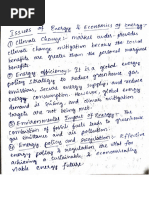 Issues of Energy & Economics of energy:-
① Climate Change:- markets under provides
climate change mitigation because the social
benefits are greater than the personal marginal
benefits.
② Energy efficiency:- It is a global energy
policy to reduce greenhouse gas
emissions, secure energy supplies & reduce
energy consumption. However, global energy
demand is rising, and climate mitigation
targets are not being met.
③ Environmental Impact of Energy:- The
combustion of fossil fuels leads to greenhouse
gas emittance and air pollution.
④ Energy policy and regulation:- Effective
energy policy & regulations are vital for
achieving a sustainable & economically
viable energy future.